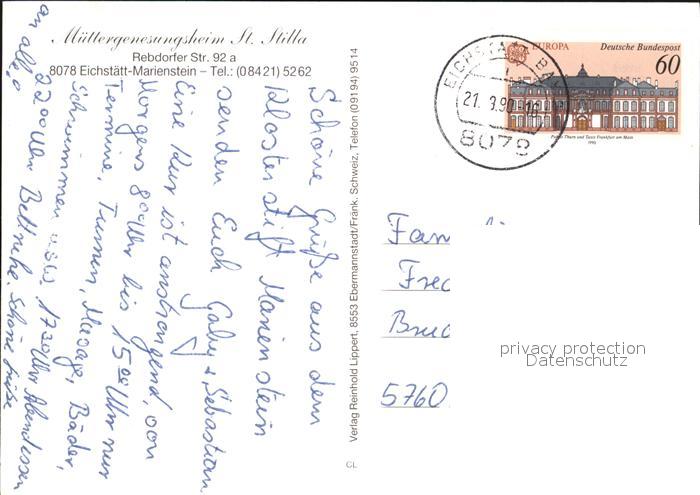 Müttergenesungsheim St. Stilla
Rebdorfer Str. 92 a
8078 Eichstätt-Marienstein – Tel.: (08421) 5262
Schöne Grüße aus dem
Klosterstift Marienstein
senden Euch Gaby + Sebastian
Eine Kur ist anstrengend, von
Morgens 8 00 Uhr bis 15 00 Uhr nur
Termine, Turnen, Massage, Bäder,
Schwimmen usw. 17 30 Uhr Abendessen
22 00 Uhr Bettruhe. Schöne Grüße
an alle
Verlag Reinhold Lippert, 8553 Ebermannstadt/Fränk. Schweiz, Telefon (09194) 9514
CL
EUROPA
Deutsche Bundespost
60
Palais Thurn und Taxis Frankfurt am Main
1990
21. 9.90
8078
Fam
Fred
5760
privacy protection
Datenschutz